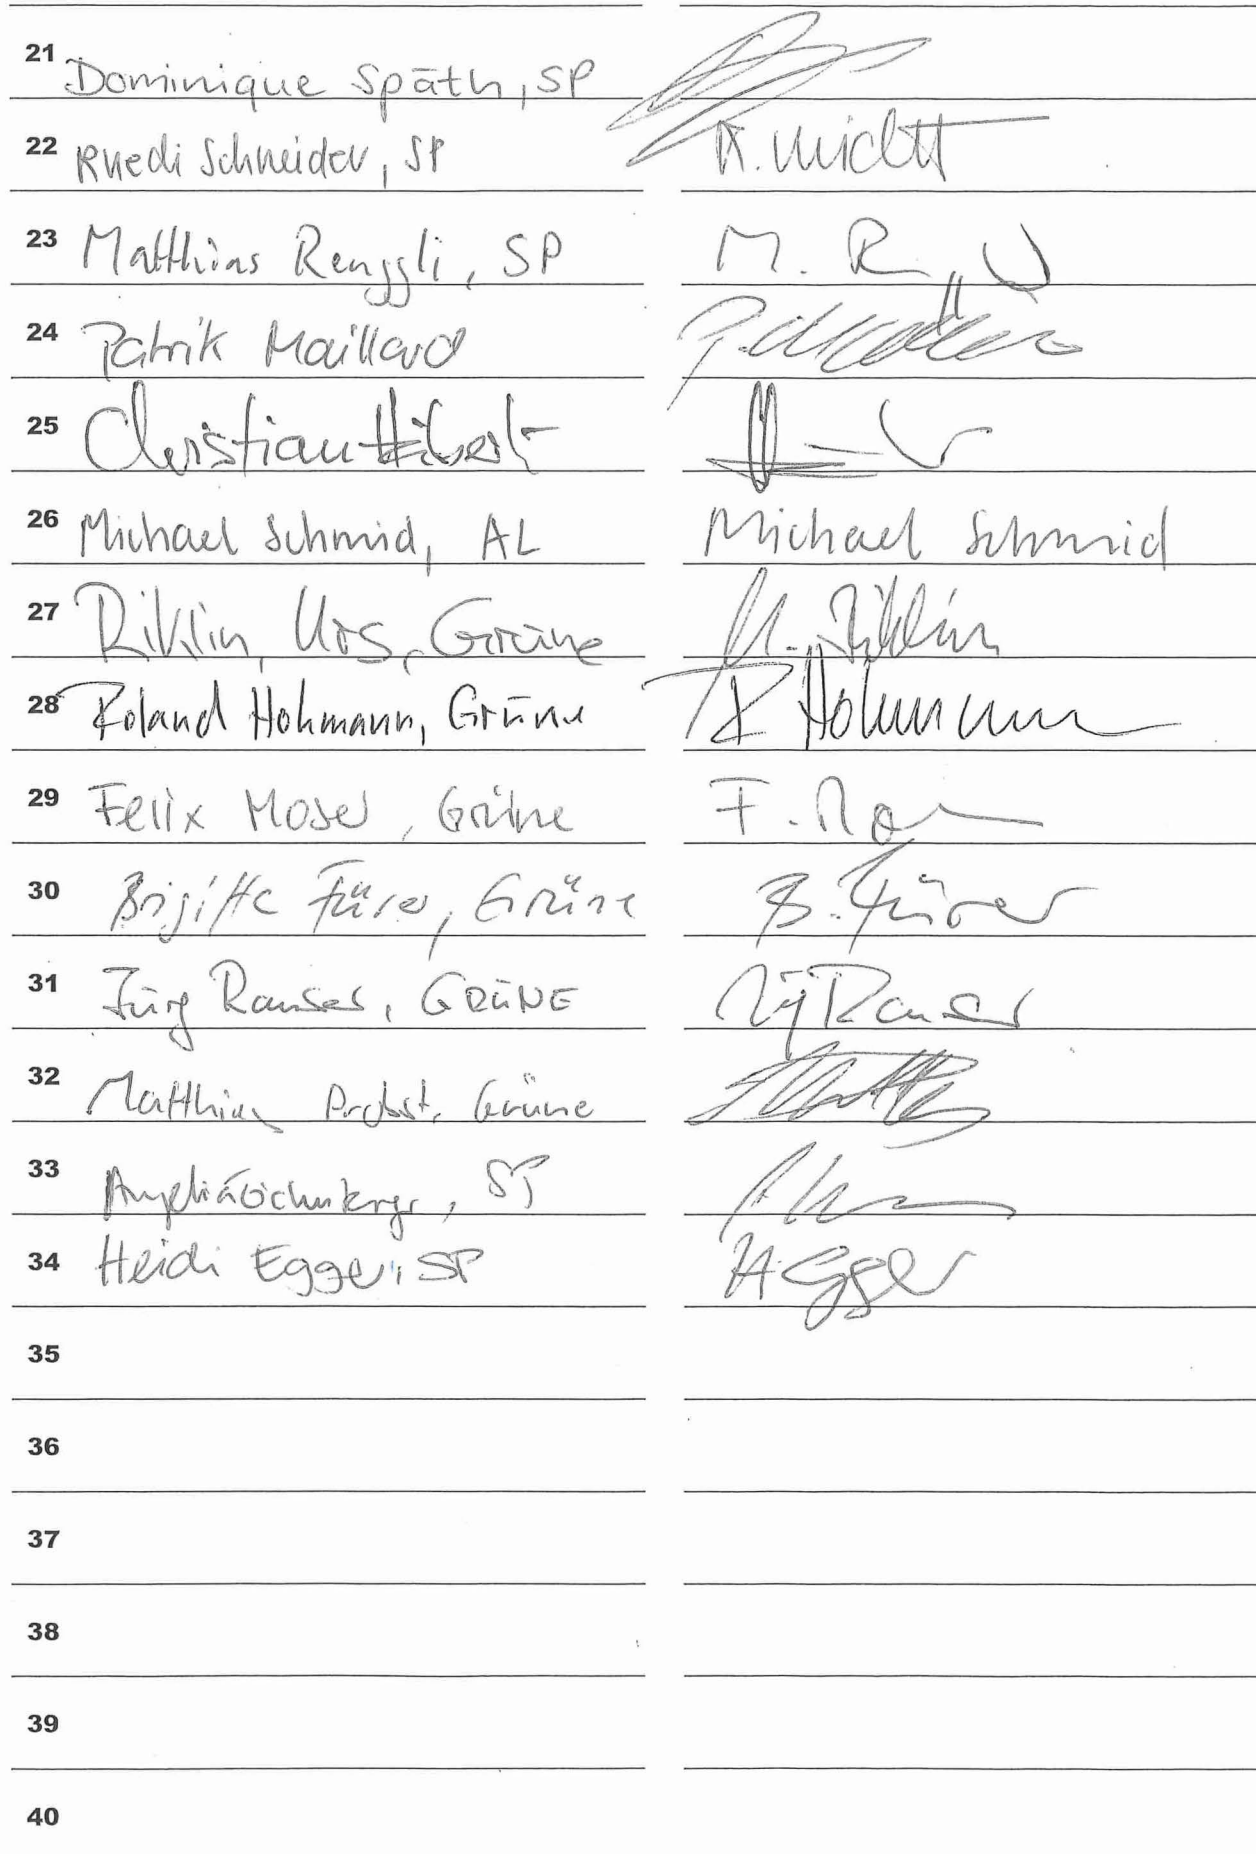 21 Dominique Späth, SP
22 Ruedi Schneider, SP
23 Matthias Renggli, SP M. R
24 Patrik Maillard
25 Christian
26 Michael Schmid, AL Michael Schmid
27 Riklin, Urs, Grüne U. Riklin
28 Roland Hohmann, Grüne R Hohmann
29 Felix Moser, Grüne F. Mo
30 Brigitte Fürer, Grüne B. Fürer
31 Jürg Rauser, GRÜNE Jürg Rauser
32 Matthias Probst, Grüne
33 SP
34 Heidi Egger, SP H Egger
35
36
37
38
39
40